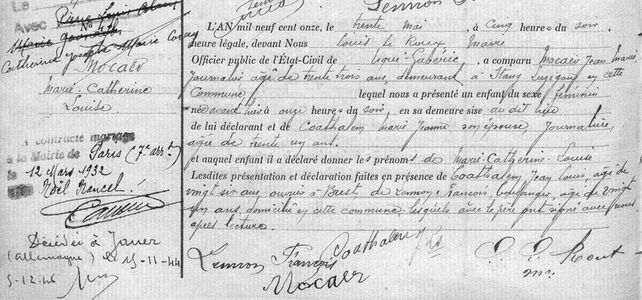 Le
Avec
Catherine Joseph Marie
Nº
MOCAËR
Marie Catherine
Louise
A contracté mariage
à la Mairie de Paris (7e arr.)
le 12 Mars 1932
Noël Mancel
Décédée à Jauer
(Allemagne) le 15-11-44
5-12-46
L'AN mil neuf cent onze, le trente mai, à cinq heures du soir
heure légale, devant Nous Louis Le Roux, Maire
Officier public de l'État-Civil de Ergué-Gabéric, a comparu Mocaër Jean Marie,
journalier âgé de trente trois ans, demeurant à Stang en cette
Commune lequel nous a présenté un enfant du sexe féminin
né avant hier à onze heures du soir, en sa demeure sise au dit lieu
de lui déclarant et Coathalem Marie Jeanne son épouse, journalière,
âgée de trente un ans.
et auquel enfant il a déclaré donner les prénoms de Marie-Catherine-Louise
Lesdites présentation et déclaration faites en présence de Coathalem Jean Louis, âgé de
vingt six ans ouvrier à Brest, de Lennon François, boulanger, âgé de vingt
un ans, domicilié en cette commune lesquels avec le père ont signé avec nous
après lecture.
Lennon François Coathalem
Mocaër